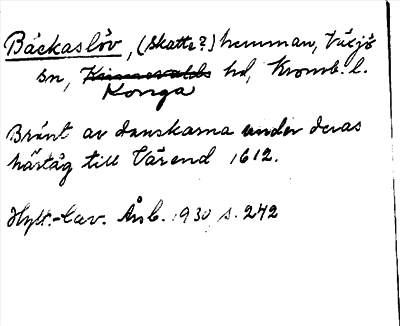 Bäckaslöv, (skatte?) hemman, Växjö
sn, Kinnevalds hd, Kronob. l.
Konga
Bränt av danskarna under deras
härtåg till Värend 1612.
Hylt.-Cav. Årb. 1930 s. 242